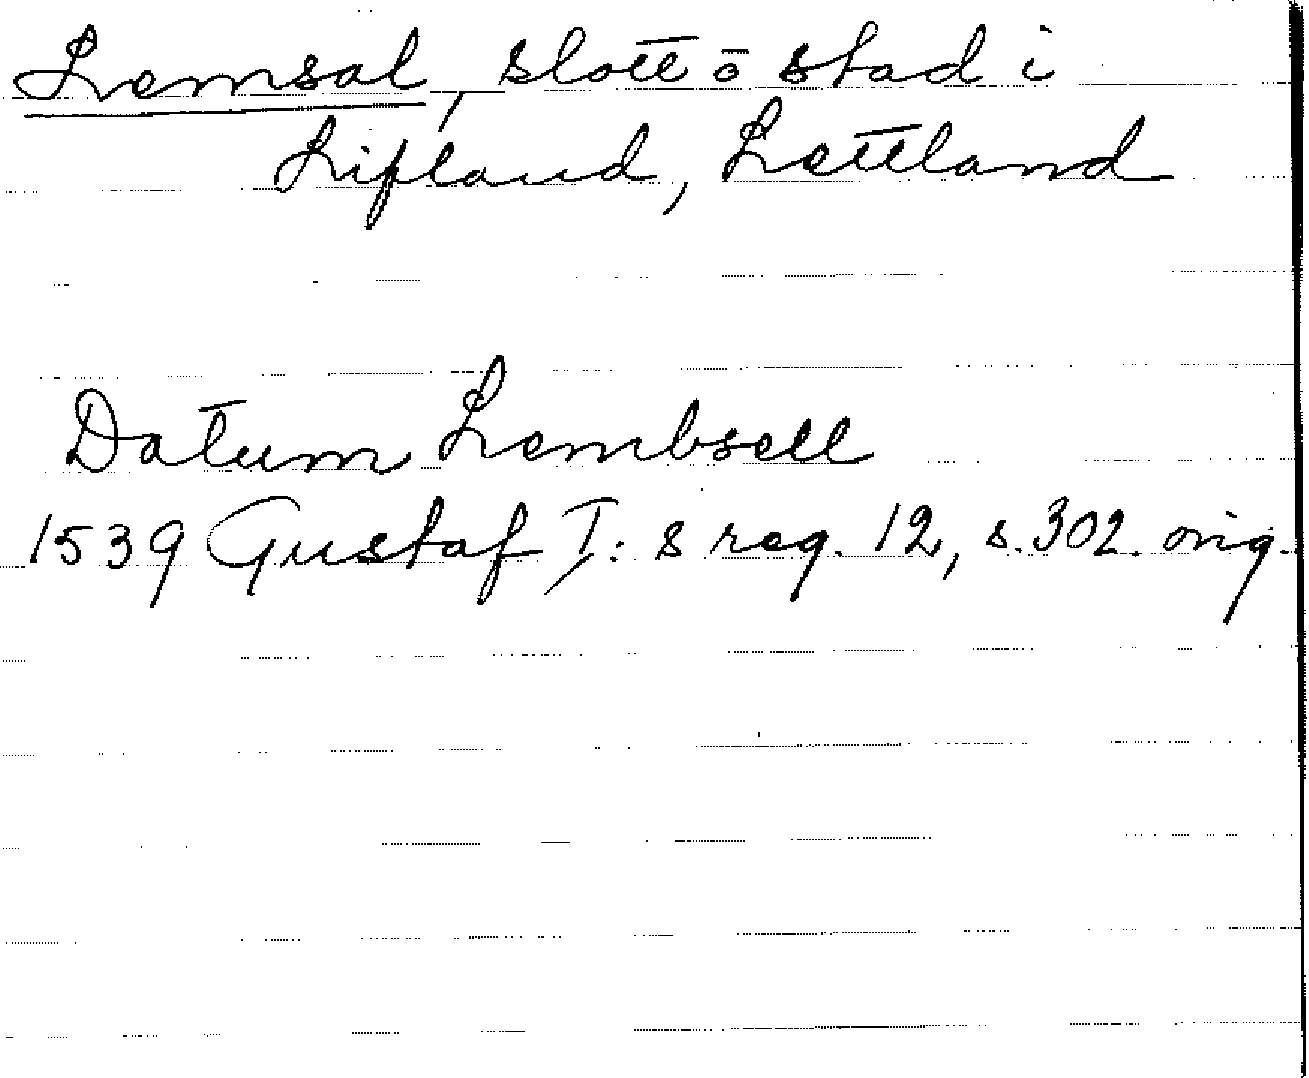 Lemsal, slott ō stad i
Lifland, Lettland
Datum Lembsell
1539 Gustaf I:s reg. 12, s. 302. orig.